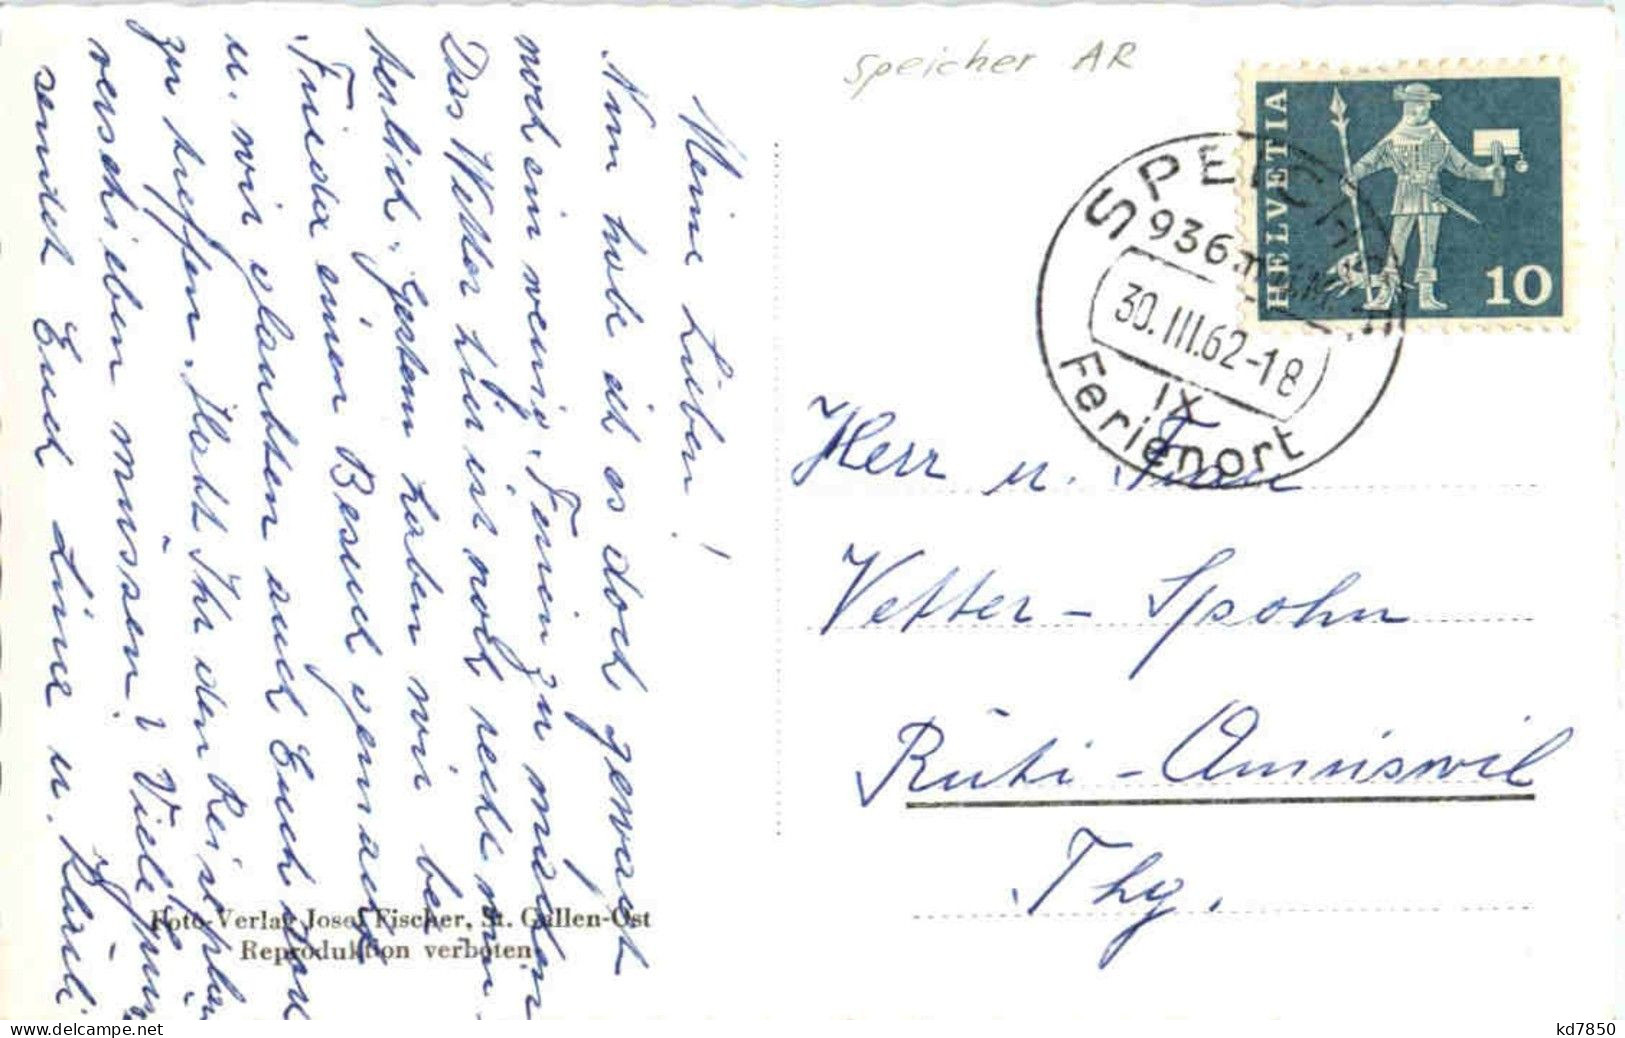 Speicher AR
HELVETIA
10
SPEICHER
936 m
30.III.62-18
IX
Ferienort
Meine Lieben!
Nun habe ich es doch gewagt
noch ein wenig Ferien zu machen
Das Wetter hier ist noch recht win-
terlich. Gestern haben wir bei
Frieda einen Besuch gemacht
u. wir glaubten auch Euch dort
zu treffen. Habt Ihr den Reiseplan
verschieben müssen? Viele Grüsse
sendet Euch Line u. Kläuli
Herr u. Frau
Vetter-Spohn
Rüti-Amriswil
Thg.
Foto-Verlag Josef Fischer, St. Gallen-Ost
Reproduktion verboten
kd7850